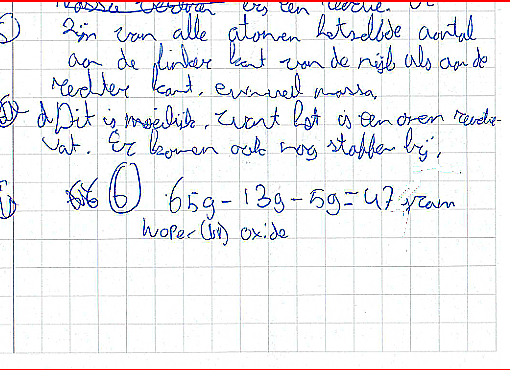 een
Zijn van alle atomen hetzelfde aantal
aan de linker kant van de pijl als aan de
rechter kant, evenveel massa.
d Dit is mogelijk, want het is een open
vat. Er komen ook nog stoffen bij.
6 65g - 13g - 5g = 47 gram
koper (II) oxide